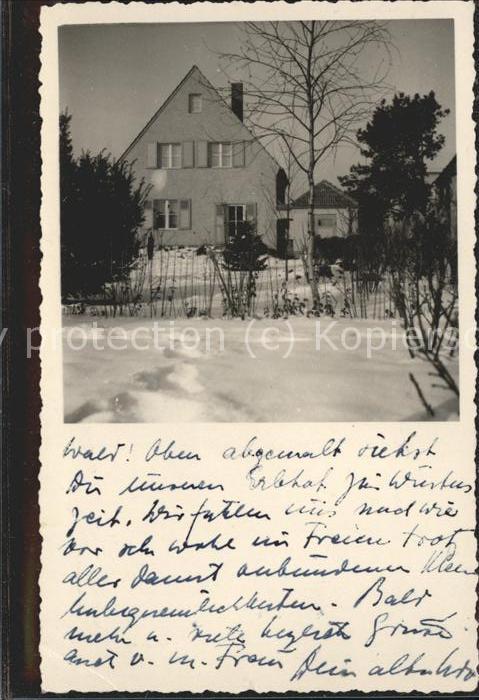 y protection (c) Kopiersc
Wald! Oben abgemalt siehst
Du unseren Erbhof zur Winters
zeit. Wir fühlen uns nach wie
vor sehr wohl im Freien trotz
aller damit verbundenen klein
Unbequemlichkeiten. Bald
mehr u. viele herzliche Grüsse
auch v. m. Frau Dein alter